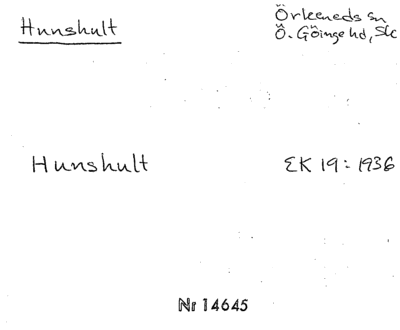 Hunshult
Örkeneds sn
Ö. Göinge hd, Sk
Hunshult
EK 19:1936
Nr 14645